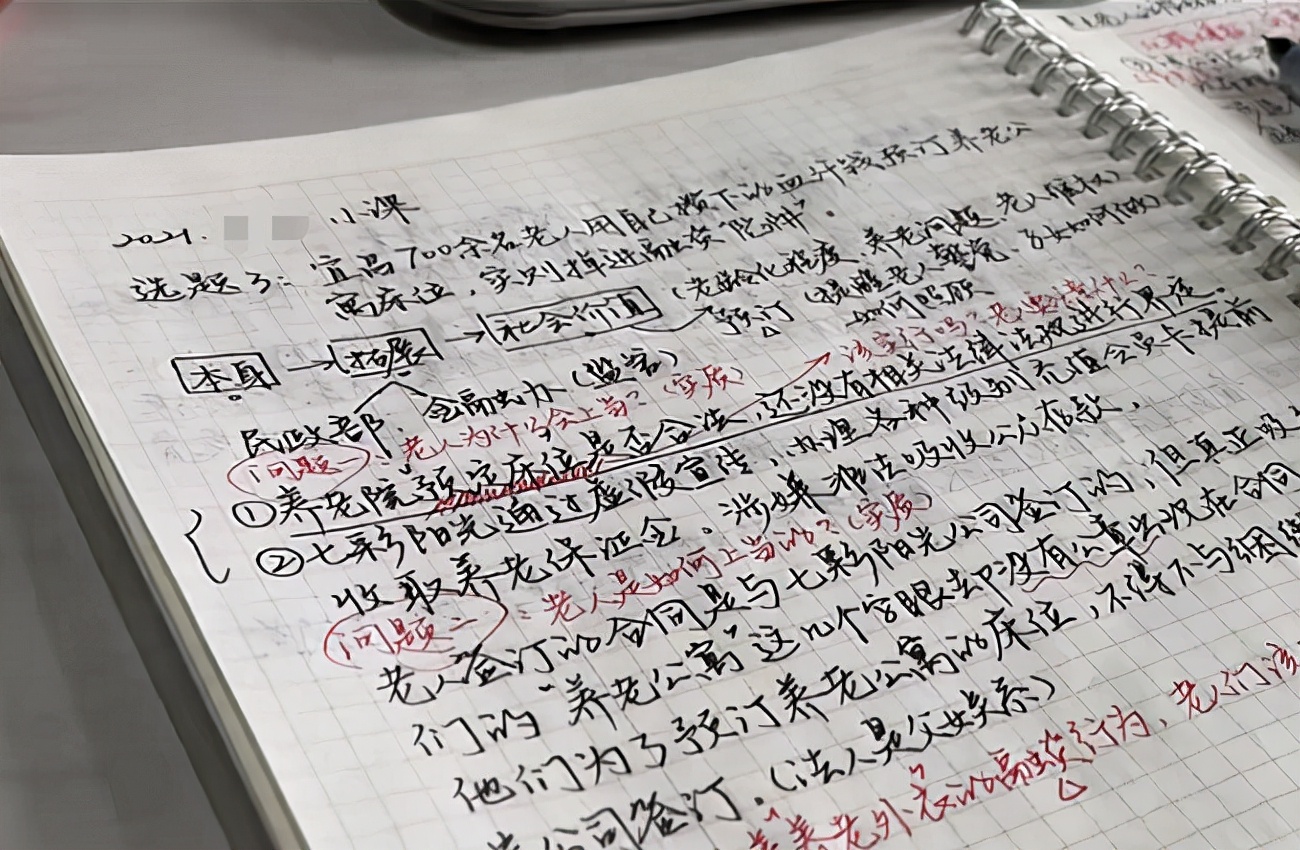 2021. 小课
选题3：宜昌700余名老人用自己攒下的血汗钱预订养老公
寓床位，实则掉进融资"陷阱"。
本身 → 拓展 → 社会价值 (老龄化程度、养老问题、老人维权)
预订 (提醒老人警觉、子女如何做)
如何照顾
民政部、金融办 (监管)
问题一：老人为什么会上当？(实质) → 该实行吗？老人要什么？
①养老院预定床位是否合法，还没有相关法律法规进行界定。
②七彩阳光通过虚假宣传、办理各种级别充值会员卡预前
收取养老保证金。涉嫌非法吸收公众存款。
问题二：老人是如何上当的？(实质)
老人签订的合同是与七彩阳光公司签订的，但真正吸
们的"养老公寓"这几个字眼去却没有公章出现在合同
他们为了预订养老公寓的床位，不得不与捆绑
公司签订。(法人是父女关系)
养老外衣的融资行为，老人们该